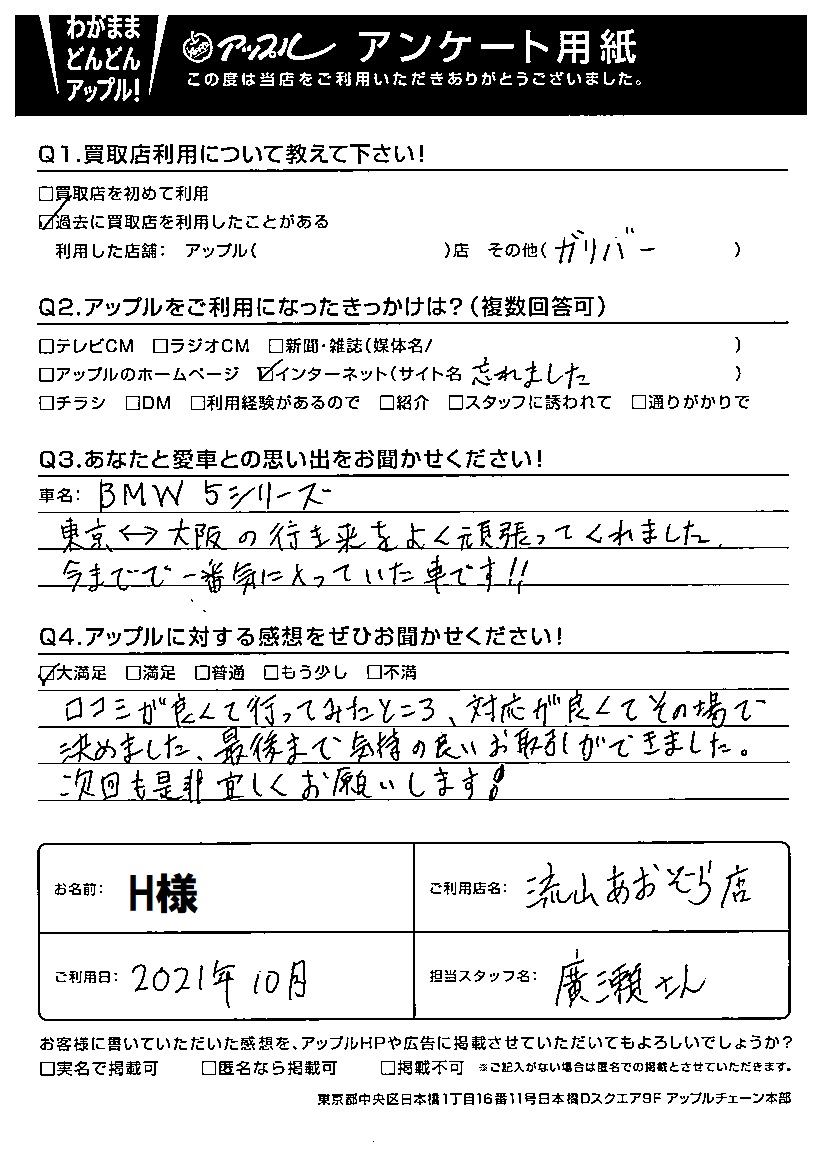 わがまま
どんどん
アップル!
アップル アンケート用紙
この度は当店をご利用いただきありがとうございました。
Q1.買取店利用について教えて下さい!
□買取店を初めて利用
☑過去に買取店を利用したことがある
利用した店舗: アップル( )店 その他( ガリバー )
Q2.アップルをご利用になったきっかけは?(複数回答可)
□テレビCM □ラジオCM □新聞・雑誌(媒体名/ )
□アップルのホームページ ☑インターネット(サイト名 忘れました )
□チラシ □DM □利用経験があるので □紹介 □スタッフに誘われて □通りがかりで
Q3.あなたと愛車との思い出をお聞かせください!
車名: BMW 5シリーズ
東京↔大阪の行き来をよく頑張ってくれました.
今までで一番気にとっていた車です!!
Q4.アップルに対する感想をぜひお聞かせください!
☑大満足 □満足 □普通 □もう少し □不満
口コミが良くて行ってみたところ、対応が良くてその場で
決めました、最後まで気持の良いお取引ができました。
次回も是非宜しくお願いします!
お名前: H様
ご利用店名: 流山あおぞら店
ご利用日: 2021年10月
担当スタッフ名: 廣瀬さん
お客様に書いていただいた感想を、アップルHPや広告に掲載させていただいてもよろしいでしょうか?
□実名で掲載可 □匿名なら掲載可 □掲載不可 ※ご記入がない場合は匿名での掲載とさせていただきます。
東京都中央区日本橋1丁目16番11号日本橋Dスクエア9F アップルチェーン本部